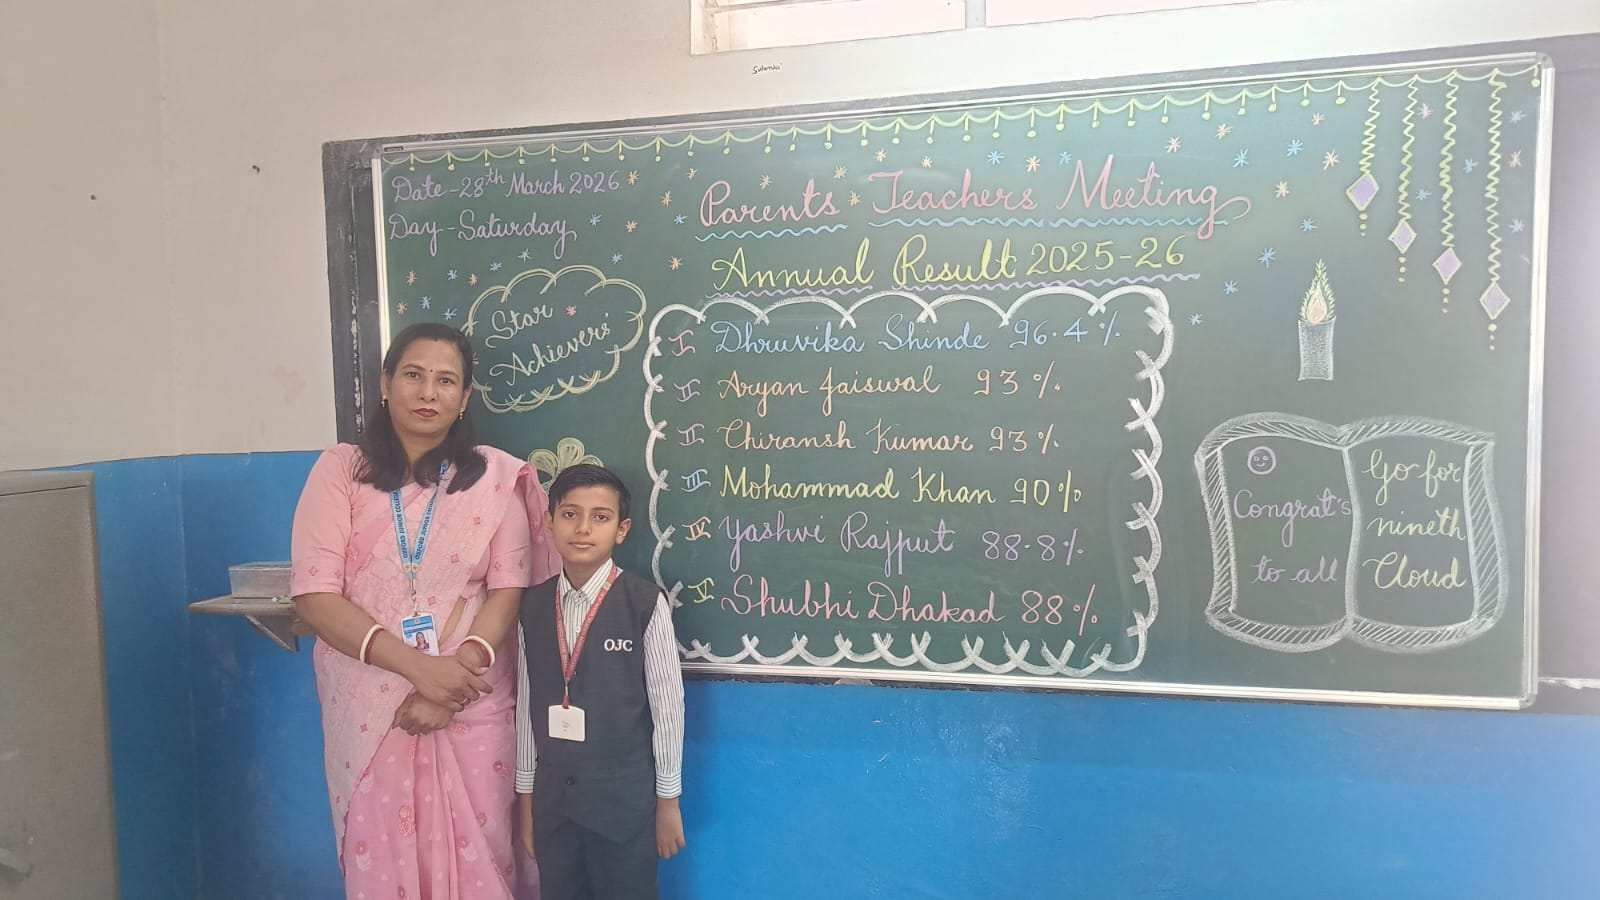 Sulanki
Date - 28th March 2026
Day - Saturday
Parents Teachers Meeting
Annual Result 2025-26
Star
Achievers'
I Dhruvika Shinde 96.4%
II Aryan Jaiswal 93%
II Chiransh Kumar 93%
III Mohammad Khan 90%
IV Yashvi Rajput 88.8%
V Shubhi Dhakad 88%
Congrat's
to all
Go for
nineth
Cloud
OXFORD JUNIOR COLLEGE
OJC